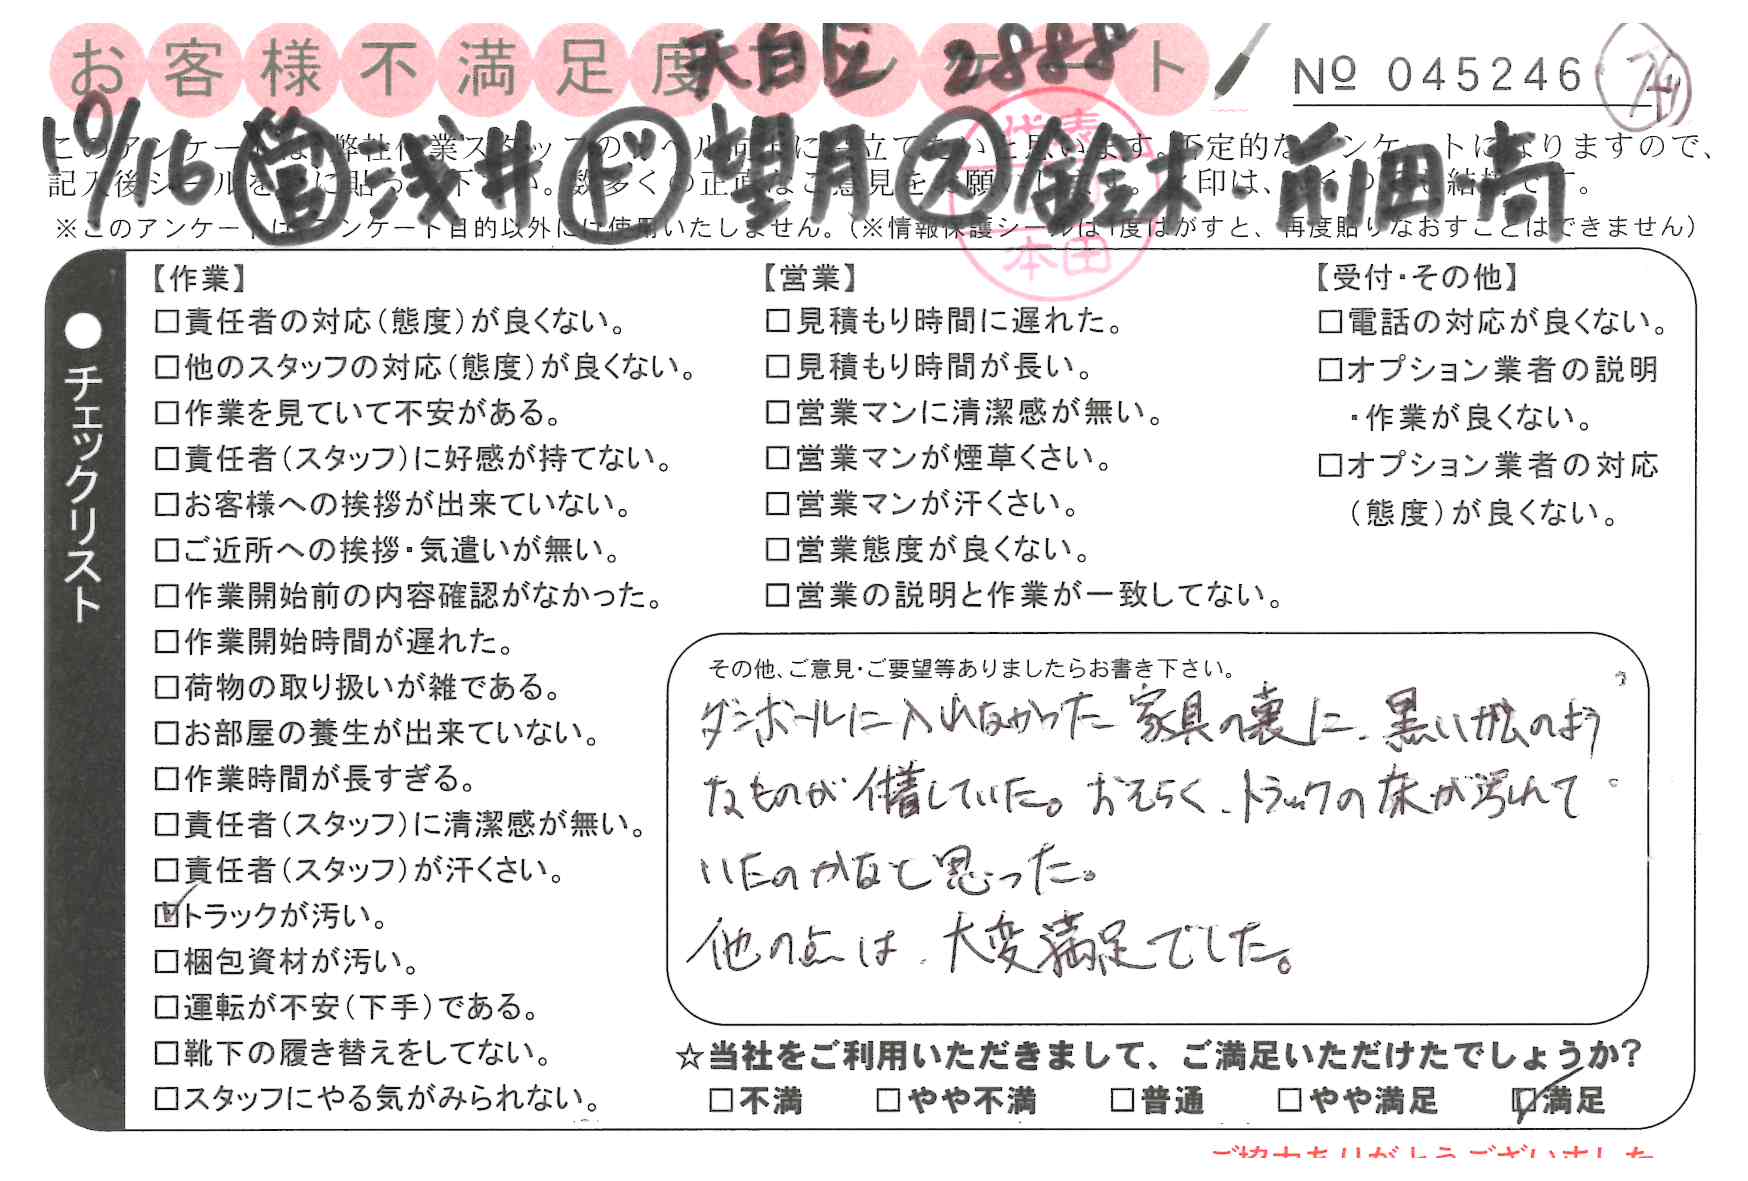 お客様不満足度アンケート
天白区 2888
№ 045246
10/16 営 浅井 ド 望月 ス 鈴木・前田尚
このアンケートは、弊社作業スタッフのレベル向上に役立てたいと思います。否定的なアンケートになりますので、
記入後シールを上に貼って下さい。数多くの正直なご意見をお願いします。
※このアンケートはアンケート目的以外には使用いたしません。(※情報保護シールは1度はがすと、再度貼りなおすことはできません)
代表
本田
●チェックリスト
【作業】
□責任者の対応(態度)が良くない。
□他のスタッフの対応(態度)が良くない。
□作業を見ていて不安がある。
□責任者(スタッフ)に好感が持てない。
□お客様への挨拶が出来ていない。
□ご近所への挨拶・気遣いが無い。
□作業開始前の内容確認がなかった。
□作業開始時間が遅れた。
□荷物の取り扱いが雑である。
□お部屋の養生が出来ていない。
□作業時間が長すぎる。
□責任者(スタッフ)に清潔感が無い。
□責任者(スタッフ)が汗くさい。
☑トラックが汚い。
□梱包資材が汚い。
□運転が不安(下手)である。
□靴下の履き替えをしてない。
□スタッフにやる気がみられない。
【営業】
□見積もり時間に遅れた。
□見積もり時間が長い。
□営業マンに清潔感が無い。
□営業マンが煙草くさい。
□営業マンが汗くさい。
□営業態度が良くない。
□営業の説明と作業が一致してない。
【受付・その他】
□電話の対応が良くない。
□オプション業者の説明
・作業が良くない。
□オプション業者の対応
(態度)が良くない。
その他、ご意見・ご要望等ありましたらお書き下さい。
ダンボールに入れなかった家具の裏に、黒いガムのよう
なものが付着していた。おそらく、トラックの床が汚れて
いたのかなと思った。
他の点は、大変満足でした。
☆当社をご利用いただきまして、ご満足いただけたでしょうか?
□不満 □やや不満 □普通 □やや満足 ☑満足
ご協力ありがとうございました